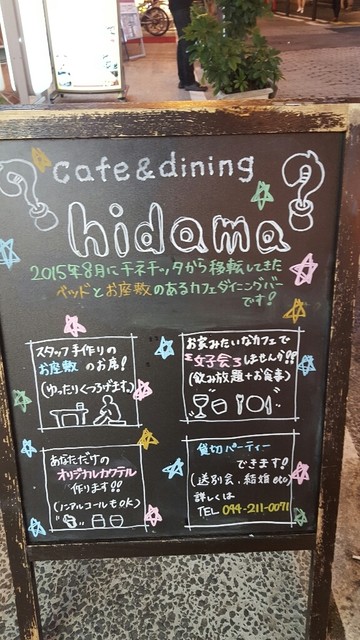 cafe&dining
hidama
2015年8月にチネチッタから移転してきた
ベッドとお座敷のあるカフェダイニングバー
です!
スタッフ手作りの
お座敷のお席!
(ゆったりくつろげます)
お家みたいなカフェで
女子会しませんか??
(飲み放題+お食事)
あなただけの
オリジナルカクテル
作ります!!
(ノンアルコールもOK)
貸切パーティー
できます!
(送別会、結婚 etc)
詳しくは
TEL 044-211-0071